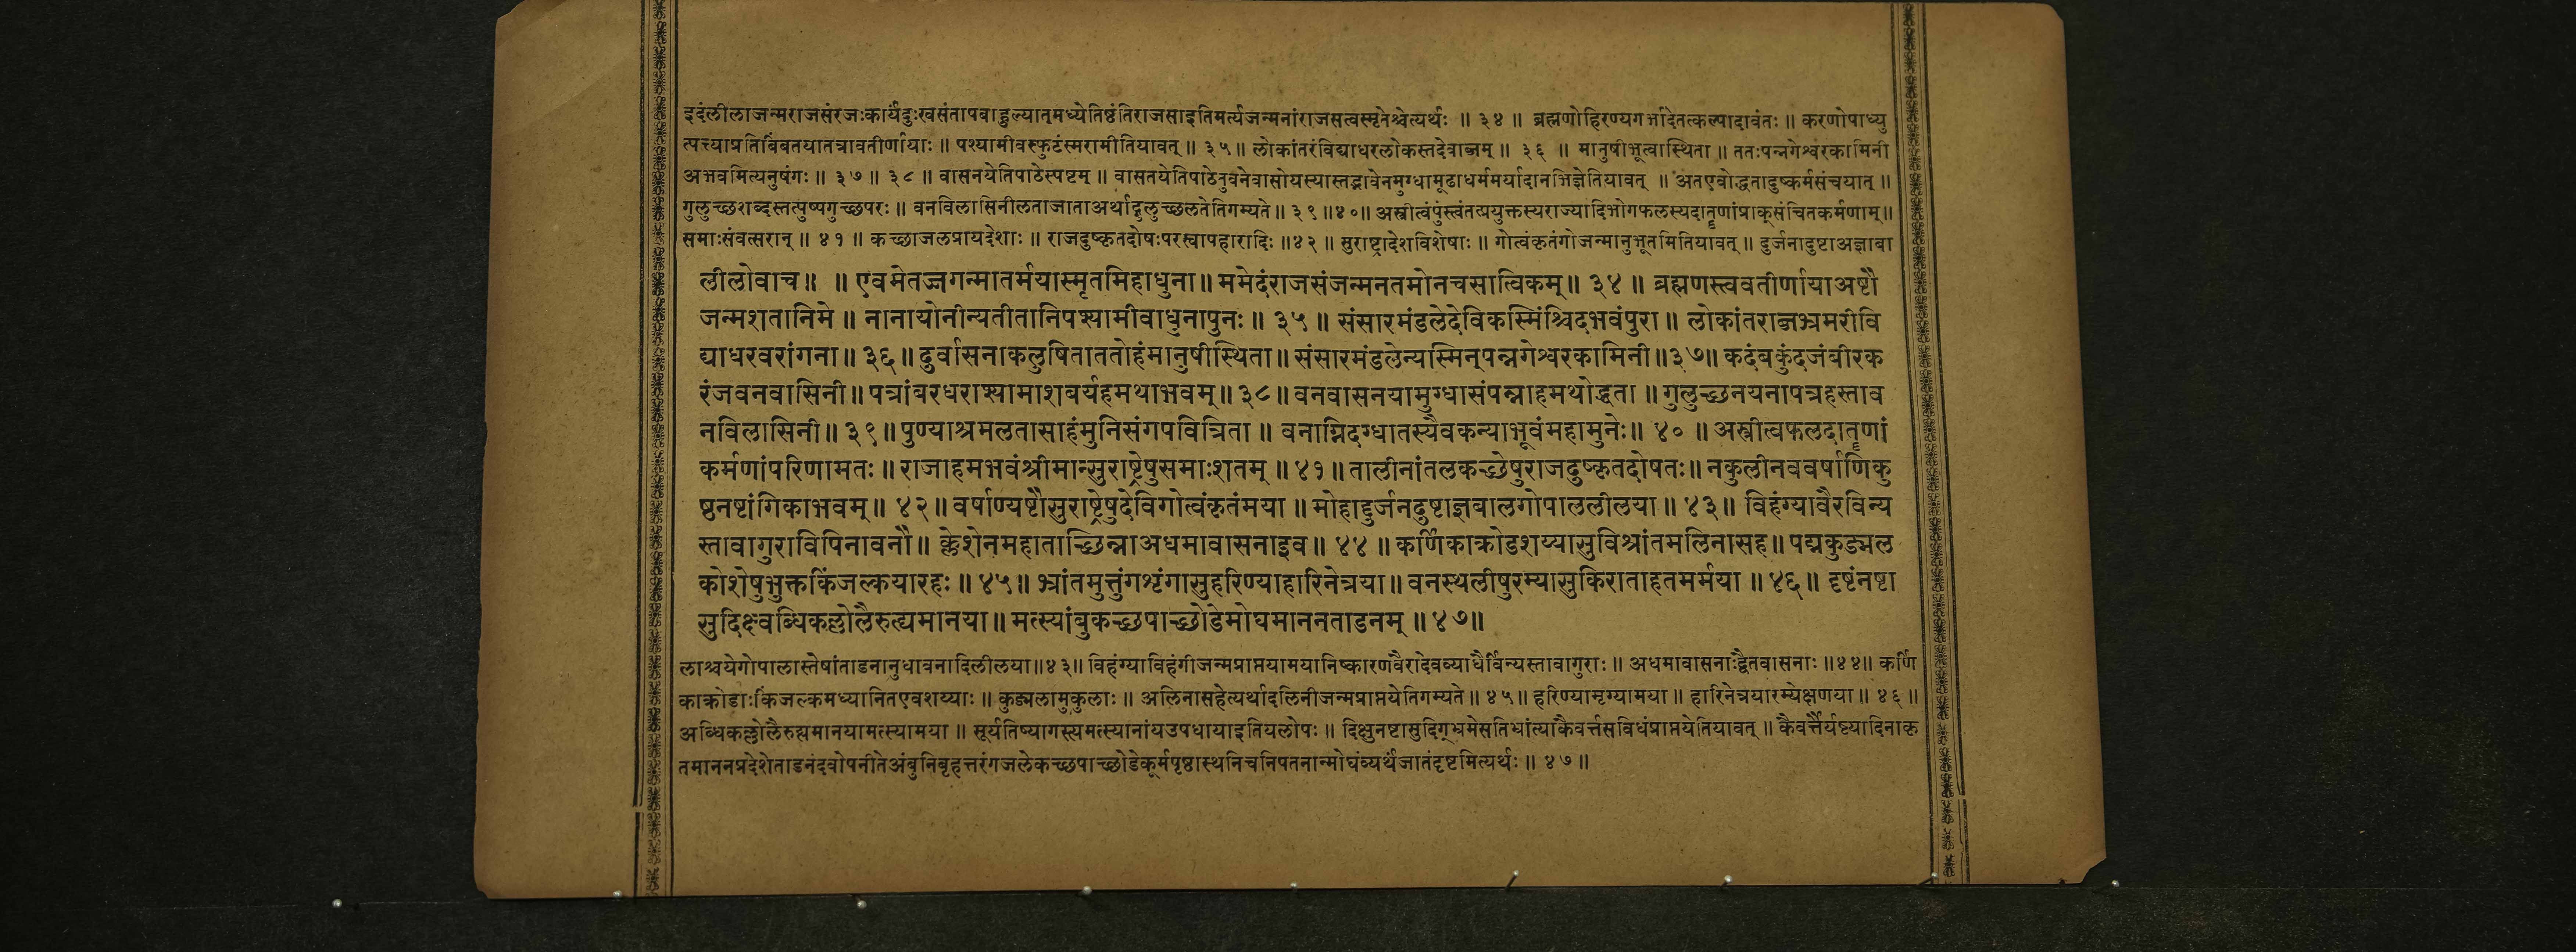 इदंलीलाजन्मराजसंरजःकार्यदुःखसंतापबाहुल्यात्मध्येतिष्ठंतिराजसाइतिमर्त्यजन्मनांराजसत्वस्मृतेश्चेत्यर्थः ॥ ३४ ॥ ब्रह्मणोहिरण्यगर्भादेतत्कल्पादावंतः ॥ करणोपाध्यु
त्पत्त्याप्रतिबिंबतयातत्रावतीर्णायाः ॥ पश्यामीवस्फुटंस्मरामीतियावत् ॥ ३५ ॥ लोकांतरंविद्याधरलोकस्तदेवाब्जम् ॥ ३६ ॥ मानुषीभूत्वास्थिता ॥ ततःपन्नगेश्वरकामिनी
अभवमित्यनुषंगः ॥ ३७ ॥ ३८ ॥ वासनयेतिपाठेस्पष्टम् ॥ वासतयेतिपाठेतुवनेवासोयस्यास्तद्भावेनमुग्धामूढाधर्ममर्यादानभिज्ञेतियावत् ॥ अतएवोद्धतादुष्कर्मसंचयात् ॥
गुलुच्छशब्दस्तत्पुष्पगुच्छपरः ॥ वनविलासिनीलताजाताअर्थाद्गुलुच्छलतेतिगम्यते ॥ ३९ ॥ ४० ॥ अस्त्रीत्वंपुंस्त्वंतत्प्रयुक्तस्यराज्यादिभोगफलस्यदातॄणांप्राक्संचितकर्मणाम् ॥
समाःसंवत्सरान् ॥ ४१ ॥ कच्छाजलप्रायदेशाः ॥ राजदुष्कृतदोषःपरस्वापहारादिः ॥ ४२ ॥ सुराष्ट्रादेशविशेषाः ॥ गोत्वंकृतंगोजन्मानुभूतमितियावत् ॥ दुर्जनादुष्टाअज्ञाबा
लीलोवाच ॥ ॥ एवमेतज्जगन्मातर्मयास्मृतमिहाधुना ॥ ममेदंराजसंजन्मनतमोनचसात्विकम् ॥ ३४ ॥ ब्रह्मणस्त्ववतीर्णायाअष्टौ
जन्मशतानिमे ॥ नानायोनीन्यतीतानिपश्यामीवाधुनापुनः ॥ ३५ ॥ संसारमंडलेदेविकस्मिंश्चिदभवंपुरा ॥ लोकांतराब्जभ्रमरीवि
द्याधरवरांगना ॥ ३६ ॥ दुर्वासनाकलुषिताततोहंमानुषीस्थिता ॥ संसारमंडलेन्यस्मिन्पन्नगेश्वरकामिनी ॥ ३७ ॥ कदंबकुंदजंबीरक
रंजवनवासिनी ॥ पत्रांबरधराश्यामाशबर्यहमथाभवम् ॥ ३८ ॥ वनवासनयामुग्धासंपन्नाहमथोद्धता ॥ गुलुच्छनयनापत्रहस्ताव
नविलासिनी ॥ ३९ ॥ पुण्याश्रमलतासाहंमुनिसंगपवित्रिता ॥ वनाग्निदग्धातस्यैवकन्याभूवंमहामुनेः ॥ ४० ॥ अस्त्रीत्वफलदातॄणां
कर्मणांपरिणामतः ॥ राजाहमभवंश्रीमान्सुराष्ट्रेषुसमाःशतम् ॥ ४१ ॥ तालीनांतलकच्छेषुराजदुष्कृतदोषतः ॥ नकुलीनववर्षाणिकु
ष्ठनष्टांगिकाभवम् ॥ ४२ ॥ वर्षाण्यष्टौसुराष्ट्रेषुदेविगोत्वंकृतंमया ॥ मोहाद्दुर्जनदुष्टाज्ञबालगोपाललीलया ॥ ४३ ॥ विहंग्यावैरविन्य
स्तावागुराविपिनावनौ ॥ क्लेशेनमहताच्छिन्नाअधमावासनाइव ॥ ४४ ॥ कर्णिकाक्रोडशय्यासुविश्रांतमलिनासह ॥ पद्मकुड्मल
कोशेषुभुक्तकिंजल्कयारहः ॥ ४५ ॥ भ्रांतमुत्तुंगशृंगासुहरिण्याहारिनेत्रया ॥ वनस्थलीषुरम्यासुकिराताहतमर्मया ॥ ४६ ॥ दृष्टंनष्टा
सुदिक्ष्वब्धिकल्लोलैरुह्यमानया ॥ मत्स्यांबुकच्छपाच्छोडेमोघमाननताडनम् ॥ ४७ ॥
लाश्चयेगोपालास्तेषांताडनानुधावनादिलीलया ॥ ४३ ॥ विहंग्याविहंगीजन्मप्राप्तयामयानिष्कारणवैरादेवव्याधैर्विन्यस्तावागुराः ॥ अधमावासनाःद्वैतवासनाः ॥ ४४ ॥ कर्णि
काक्रोडाःकिंजल्कमध्यानितएवशय्याः ॥ कुड्मलामुकुलाः ॥ अलिनासहेत्यर्थादलिनीजन्मप्राप्तयेतिगम्यते ॥ ४५ ॥ हरिण्यामृग्यामया ॥ हारिनेत्रयारम्येक्षणया ॥ ४६ ॥
अब्धिकल्लोलैरुह्यमानयामत्स्यामया ॥ सूर्यतिष्यागस्त्यमत्स्यानांयउपधायाइतियलोपः ॥ दिक्षुनष्टासुदिग्भ्रमेसतिभ्रांत्याकैवर्त्तसविधंप्राप्तयेतियावत् ॥ कैवर्त्तैर्यष्ट्यादिनाकृ
तमाननप्रदेशेताडनंदवोपनीतेअंबुनिबृहत्तरंगजलेकच्छपाच्छोडेकूर्मपृष्ठास्थनिचनिपतनान्मोघंव्यर्थंजातंदृष्टमित्यर्थः ॥ ४७ ॥